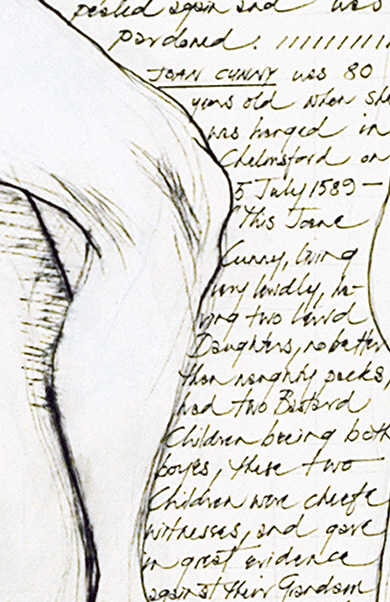 pealed again and was
pardoned. ///////////
JOAN CUNNY was 80
years old when she
was hanged in
Chelmsford on
5 July 1589 —
"This Jone
Cunny, living
very lewdly, ha-
ving two lewd
Daughters, no better
than naughty packs,
had two Bastard
Children beeing both
boyes, these two
Children were cheefe
witnesses, and gave
in great evidence
against their Grandam